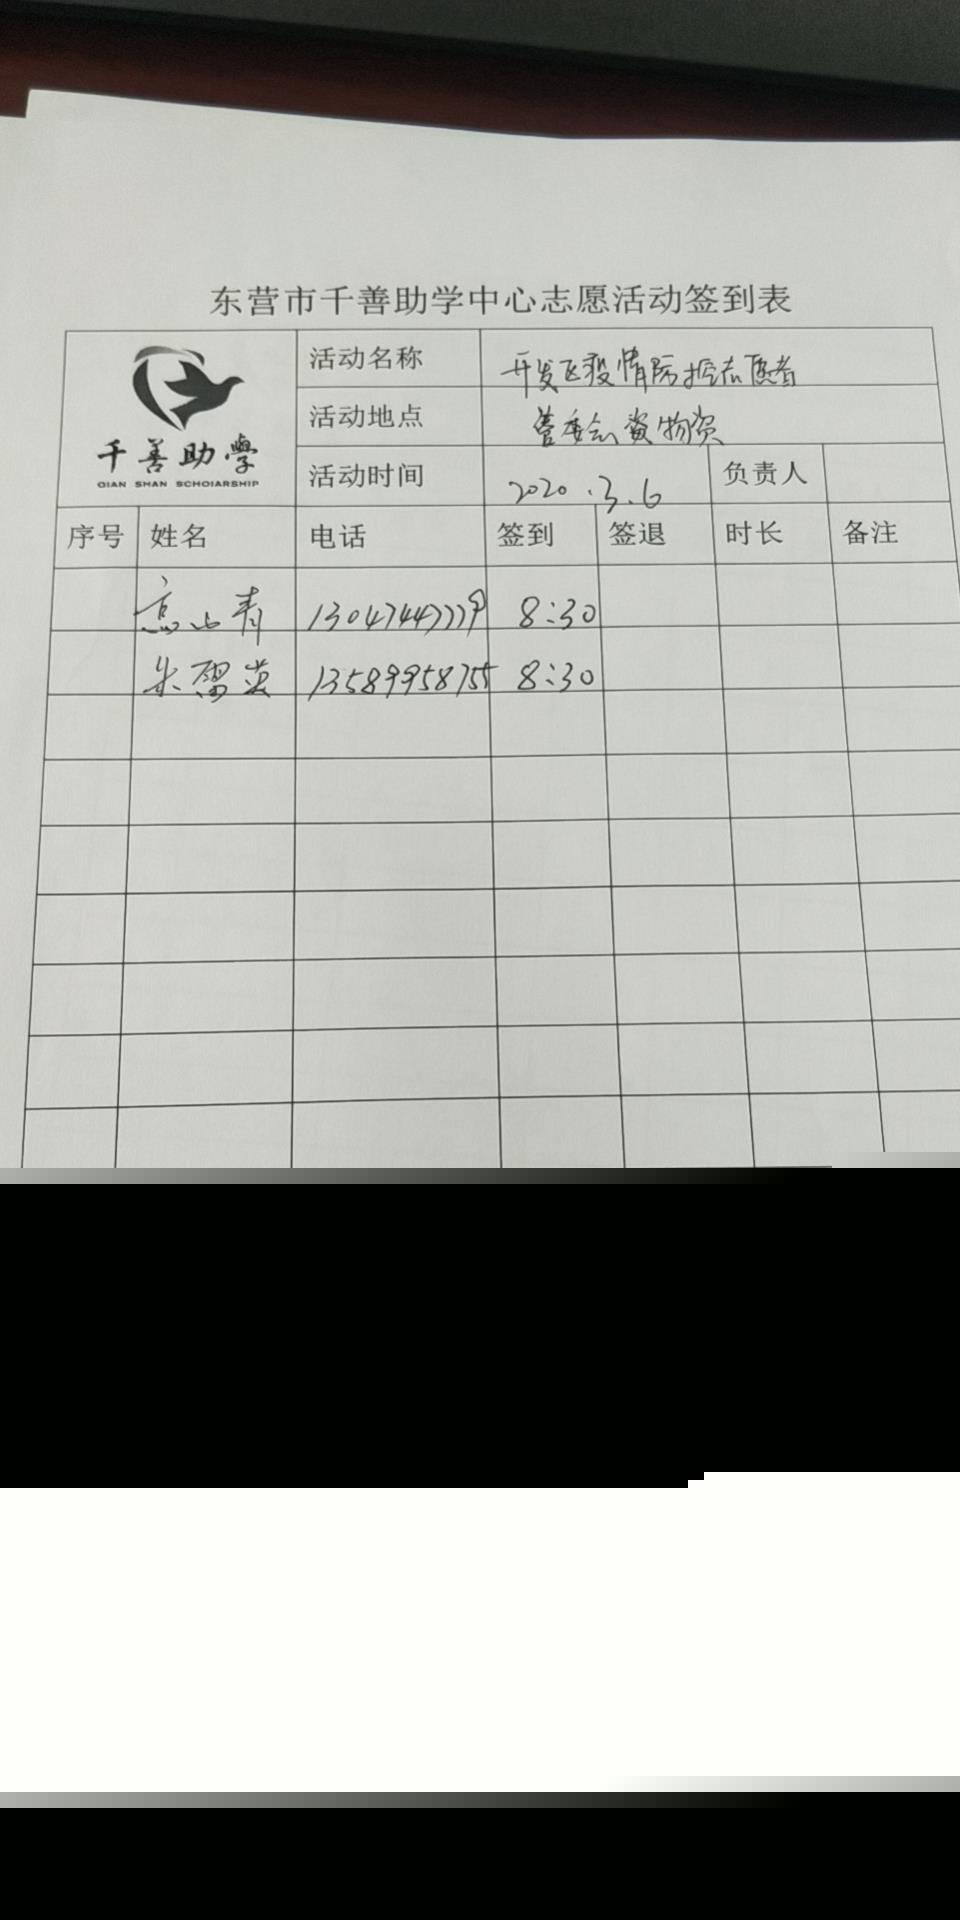 东营市千善助学中心志愿活动签到表
千善助學
QIAN SHAN SCHOIARSHIP
活动名称 开发区疫情防控志愿者
活动地点 管委会资物资
活动时间 2020.3.6 负责人
序号 姓名 电话 签到 签退 时长 备注
高 青 8:30
朱 英 13589958755 8:30